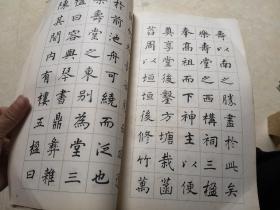 壽以南之勝盡於此矣
樂壽堂之西構祠三楹
奉高祖而下神主以便
奠享堂後鑿方塘栽菡
萏周以垣後修竹萬
於前池舟可繞而泛也
樂壽堂之東別為堂三
楹曰容與琴書鼎彝雜
陳其間內有樓五楹曰